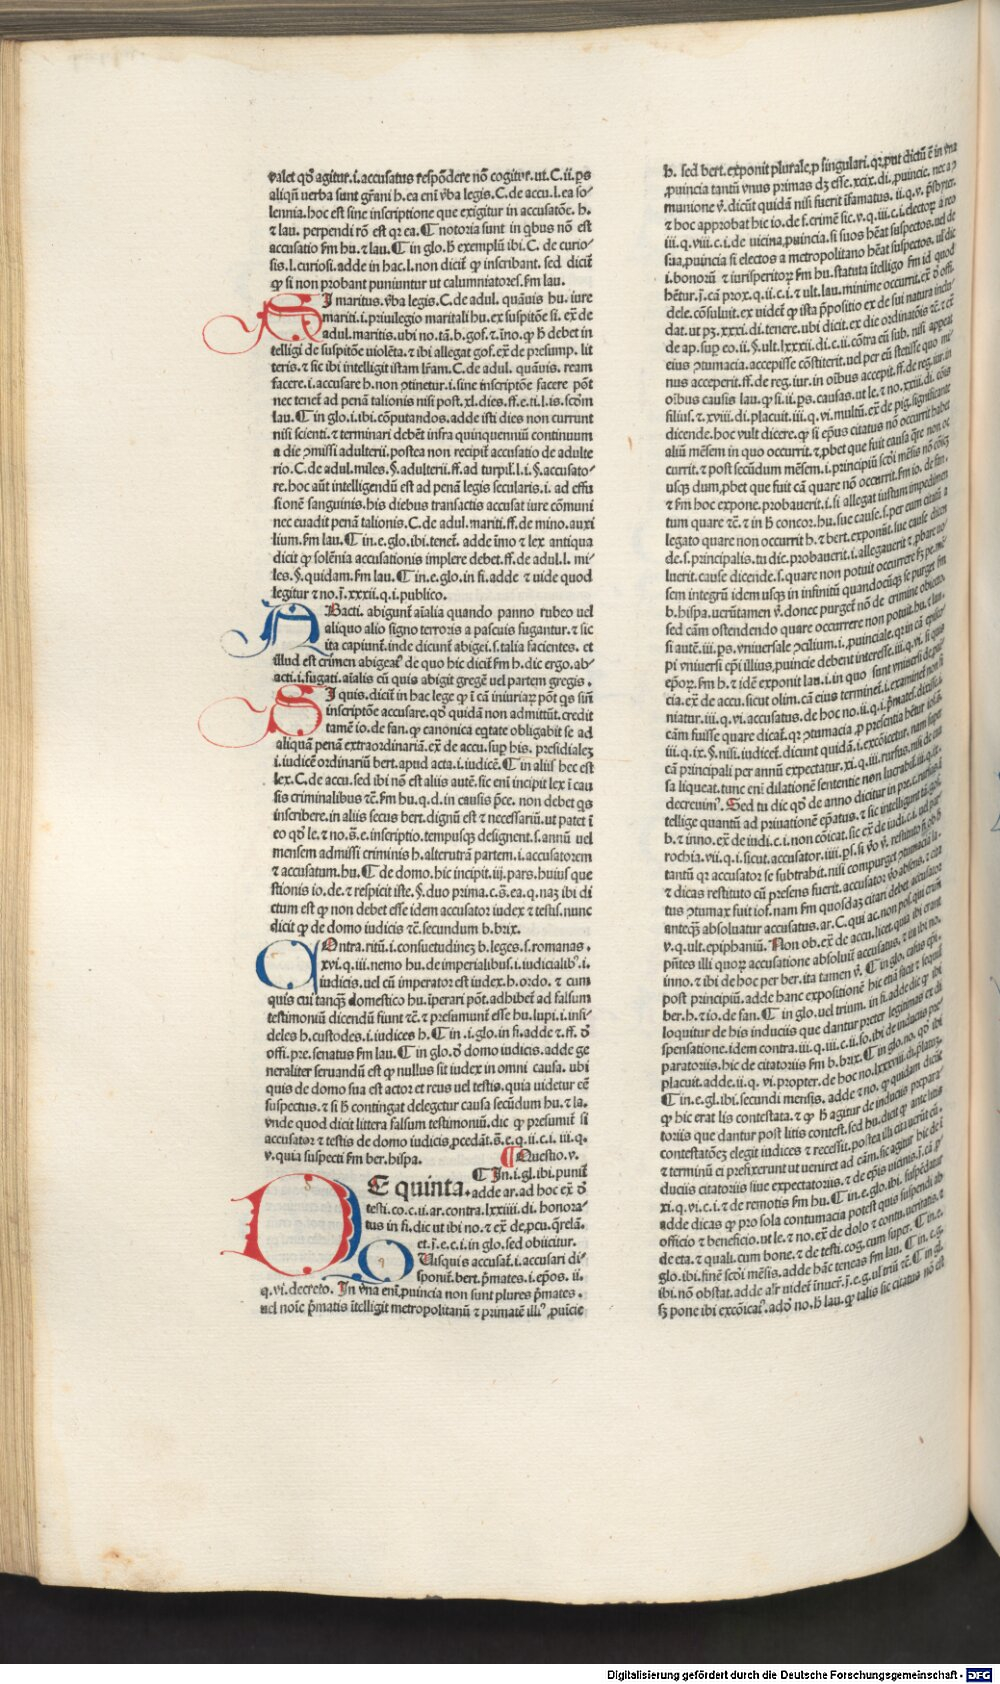 valet qđ agitur.i.accusatus respōdere nō cogitur.ut.C.ii.ps
aliqn̄ uerba sunt gr̄ani h.ea eni ꝟba legis.C.de accu.l.ea so⸗
lennia.hoc est sine inscriptione que exigitur in accusatōe.h.
⁊ lau. perpendi rō est qr ea. ¶ notoria sunt in qbus nō est
accusatio fm hu.⁊ lau. ¶ in glo.ƀ exemplū ibi. C. de curio⸗
sis.l.curiosi.adde in hac.l.non dicit̄ ꝙ inscribant. sed dicit̄
ꝙ si non probant puniuntur ut calumniatores.fm lau.
SI maritus.ꝟba legis.C.de adul. quāuis hu. iure
mariti.i.priuilegio maritali hu.ex suspitōe si. ex̄.de
adul.maritis.ubi no.tā.b.gof.⁊ īno.ꝙ ƀ debet in
telligi de suspitōe uiolēta.⁊ ibi allegat gof.ex̄.de presump. lit
teris.⁊ sic ibi intelligit istam lr̄am.C.de adul. quāuis. ream
facere.i.accusare h.non ↄtinetur.i.sine inscriptōe facere pōt
nec tenet̄ ad penā talionis nisi post.xl.dies.ff.e.ti.l.is.scđm
lau.¶ in glo.i.ibi.cōputandos.adde isti dies non currunt
nisi scienti.⁊ terminari debēt infra quinquenniū continuum
a die ↄmissi adulterii.postea non recipit̄ accusatio de adulte
rio.C.de adul.miles.§.adulterii.ff.ad turpil.l.i.§.accusato⸗
re.hoc aūt intelligendū est ad penā legis secularis.i. ad effu
sionē sanguinis.his diebus transactis accusat iure cōmuni
nec euadit penā talionis.C.de adul.mariti.ff.de mino.auxi
lium.fm lau.¶ in.e.glo.ibi.tenet̄. adde īmo ⁊ lex antiqua
dicit ꝙ solēnia accusationis implere debet.ff.de adul.l. mi⸗
les.§.quidam.fm lau. ¶ in.e.glo.in fi.adde ⁊ uide quod
legitur ⁊ no.j̄.xxxii.q.i.publico.
ABacti. abigunt̄ aīalia quando panno rubeo uel
aliquo alio signo terroris a pascuis fugantur.⁊ sic
ita capiunt̄.inde dicunt̄ abigei.s.talia facientes. et
illud est crimen abigeat⁹ de quo hic dicit̄ fm h.dic ergo.ab⸗
acti.i.fugati.aīalis cū quis abigit gregē uel partem gregis.
SI quis.dicit̄ in hac lege ꝙ ī cā iniuriaꝝ pōt qs siñ
inscriptōe accusare.qđ quidā non admittūt.credit
tamē io.de fan.ꝙ canonica eqtate obligabit se ad
aliquā penā extraordinariā.ex̄.de accu.sup his. presidialez
i.iudicē ordinariū bert.apud acta.i.iudicē.¶ in aliis hec est
lex.C.de accu.sed ibi nō est aliis autē.sic eni incipit lex ī cau
sis criminalibus ⁊c̄.fm hu.q.d.in causis p̄ce. non debet qs
inscribere.in aliis secus bert.dignū est ⁊ necessariū.ut patet ī
eo qđ le.⁊ no.s̄.e.inscriptio.tempusqꝫ designent.s.annū uel
mensem admissi criminis h.alterutrā partem.i.accusatorem
⁊ accusatum.hu. ¶ de domo.hic incipit.iii.pars.huius que
stionis io.de.⁊ respicit iste.§.duo prima.c.s̄.ea.q.naꝫ ibi di
ctum est ꝙ non debet esse idem accusator iudex ⁊ testis.nunc
dicit ꝙ de domo iudicis ⁊c̄.secundum h.brix.
COntra.ritū.i.consuetudineꝫ h.leges.s.romanas.
xvi.q.iii.nemo hu.de imperialibus.i.iudicialib⁹.i.
iudicis.uel cū imperator est iudex.h.ordo.⁊ cum
quis cui tanqꝫ domestico hu.īperari pōt.adhibet̄ ad falsum
testimoniū dicendū fiunt ⁊c̄.⁊ presumunt̄ esse hu.lupi.i.infi⸗
deles h.custodes.i.iudices h.¶ in.i.glo.in fi.adde ⁊ ff. đ
offi.pre.senatus fm lau.¶ in glo.đ domo iudicis.adde ge
neraliter seruandū est ꝙ nullus sit iudex in omni causa. ubi
quis de domo sua est actor et reus uel testis.quia uidetur eē
suspectus.⁊ si ƀ contingat delegetur causa secūdum hu.⁊ la.
vnde quod dicit littera falsum testimoniū. dic ꝙ presumit̄ si
accusator ⁊ testis de domo iudicis ꝓcedāt.s̄.e.q.ii.c.i. iii.q.
v.quia suspecti fm ber.hispa. ¶ Questio.v.
DE quinta. ¶ In.i.gl.ibi.punit̄
adde ar.ad hoc ex̄ đ
testi.co.c.ii.ar.contra.lxxiiii.di. honora⸗
tus in fi.dic ut ibi no.⁊ ex̄ de.ꝓcu.qrelā.
et.j̄.e.c.i.in glo.sed obiicitur.
QUisquis accusat̄.i.accusari di⸗
sponit̄.bert.p̄mates.i.epos. ii.
q.vi.decreto. In vna eni ꝓuincia non sunt plures p̄mates.
uel noīe p̄matis ītelligit metropolitanū ⁊ primatē illi⁹ ꝓuīcie
h. sed bert.exponit plurale.ꝓ singulari.qr.put dictū ē in vna
ꝓuincia tantū vnus primas dꝫ esse.xcix.di.ꝓuincie. nec aↄ
munione ꝟ.dicūt quidā nisi fuerit īfamatus. ii.q.v. p̄sbyter.
⁊ hoc approbat hic io.de f.crimē sic.v.q.iii.c.i.electoꝝ a reo
iii.q.viii.c.i.de uicina.ꝓuincia.si suos hēat suspectos.uel de
sua.ꝓuincia si electos a metropolitano hēat suspectos. ul dic
i.bonoꝝ ⁊ iurisperitoꝝ fm hu.statuta ītelligo fm id quod
hētur.j̄.cā prox.q.ii.c.i.⁊ ult.lau.minime occurrit.ex̄ đ offi.
dele.cōsuluit.ex uidet̄ ꝙ ista p̄positio ex de sui natura indu⸗
dat.ut pꝫ.xxxi.di.tenere.ubi dicit.ex die ordinatōis ⁊c̄.⁊ ex̄
de ap.sup eo.ii.§.ult.lxxxii.di.c.ii.cōtra eū sub. nisi appeat
eius ↄtumacia.accepisse cōstiterit.uel per eū stetisse quo mi⸗
nus acceperit.ff.de reg.iur.in oībus accepit.ff.de reg.iur.in
oībus causis lau.ꝙ si.ii.ps.causas.ut le.⁊ no.xxiii.di. cōis
filius.⁊.xviii.di.placuit.iii.q.vi.multū.ex̄ de pig.significante
dicende.hoc vult dicere.ꝙ si ep̄us citatus nō occurrit habet
aliū mēsem in quo occurrit.⁊.ꝓbet que fuit causa q̄re non oc
currit.⁊ post secūdum mēsem.i.principiū scđi mēsis nō cōiicit̄
usqꝫ dum.ꝓbet que fuit cā quare nō occurrit.fm io. de fan.
⁊ fm hoc expone.probauerit.i.si allegat iustum impedimen
tum quare ⁊c̄.⁊ in ƀ concor.hu.sue cause.s.per cum citatū a
legato quare non occurrit h.⁊ bert.exponūt.sue cause dicen
de.s.principalis.tu dic.probauerit.i.allegauerit ⁊ ꝓbare uo⸗
luerit.cause dicende.s.quare non potuit occurrere fꝫ pe.mē
sem integrū idem usqꝫ in infinitū quandocūqꝫ se purget fm
h.hispa.uerūtamen ꝟ.donec purget̄ nō de crimine obiecto.
sed cām ostendendo quare occurrere non potuit.hu.⁊ lau.
si autē.iii.ps.vniuersale ↄcilium.i.ꝓuinciale.qr in cā episco⸗
pi vniuersi ep̄i illius.ꝓuincie debent interesse.iii.q.vi. si quis
ep̄oꝝ.fm h.⁊ idē exponit lau.i.in quo sunt vniuersi de.ꝓuin⸗
cia.ex̄.de accu.sicut olim.cā eius terminet̄.i.examinet̄ non fi
niatur.iii.q.vi.accusatus.de hoc no.ii.q.i.p̄mates.discussis.i
cām fuisse quare dicat̄.qr ↄtumacia.ꝓ presentia hētur iof.in.
iii.q.ix.§.nisi.iudicet̄.dicunt quidā.i.excōicetur.nam super
cā principali per annū expectatur.xi.q.iii.rursus.nisi de cau
sa liqueat.tunc eni dilationē sententie non lucrabit̄.iii.q.ix.
decreuim⁹. Sed tu dic qđ de anno dicitur in pre.c.rursus.ī
tellige quantū ad priuationē ep̄atus.⁊ sic intelligunt tā gof.
b.⁊ inno.ex̄ de indi.c.i.non cōicat.sic ex̄ de iudi.c.i. ud par
rochia.vii.q.i.sicut.accusator.iiii.ps.si ꝟo ꝟ. restituto si ob ƀ
tantū qr accusator se subtrabit.nisi compurget ↄtumaciā la⸗
⁊ dicas restituto cū presens fuerit.accusator ꝟo absens.⁊ cita
tus ↄtumax fuit iof.nam fm quosdaꝫ citari debet accusator
anteqꝫ absoluatur accusatus.ar.C.qui ac.non pos.qui crimē
v.q.ult.epiphaniū. Non ob.ex̄ de accu.licet.quia ibi erant
pn̄tes illi quoꝝ accusatione absoluit̄ accusatus.⁊ in ibi no.
inno.⁊ ibi de hoc per ber.ita tamen ꝟ. ¶ in glo. casus epi.
post principiū.adde hanc expositionē hic etiā facit ⁊ sequit̄
ber.h.⁊ io.de fan. ¶ in glo. uel trium. in fi.adde dic ꝙ ibi
loquitur de his induciis que dantur preter legitimas ex di
spensatione.idem contra.iii.q.iii.c.ii.so.ibi de induciis pre⸗
paratoriis.hic de citatoriis fm b.brix.¶ in glo.no. qđ ibi
placuit.adde.ii.q. vi.propter.de hoc no.lxxxviii.di.platuꝫ.
¶ in.e.gl.ibi.secundi mensis. adde ⁊ no. ꝙ quidam dicūt
ꝙ hic erat lis contestata.⁊ ꝙ ƀ agitur de induciis prepara⸗
toriis que dantur post litis contest.sed hu.dicit ꝙ ante litis
contestatōeꝫ elegit iudices ⁊ recessit.postea illi cita uerūt eū.
⁊ terminū ei prefixerunt ut ueniret ad cām.sic agitur hic de ī
duciis citatoriis siue expectatoriis.⁊ de ep̄is uicinis.j̄.cā.ꝓ.
xi.q.vi.c.i.⁊ de remotis fm hu.¶ in.e.glo.ibi. suspēdatur
adde dicas ꝙ pro sola contumacia potest quis suspendi ab
officio ⁊ beneficio.ut le.⁊ no.ex̄ de dolo ⁊ contu.ueritatis.⁊
de eta.⁊ quali.cum bone.⁊ de testi.cog.cum super. ¶ in.e.
glo.ibi.finē scđi mēsis.adde hāc teneas fm lau. ¶ in.e.g.
ibi.nō obstat.adde alr̄ uidet̄ inuer̄.j̄.e.g.ul⁹triū ⁊c̄.¶ in gl.
fꝫ pone ibi excōicat̄.adđ no.ƀ lau.ꝙ talis sic citatus nō est
Digitalisierung gefördert durch die Deutsche Forschungsgemeinschaft - DFG